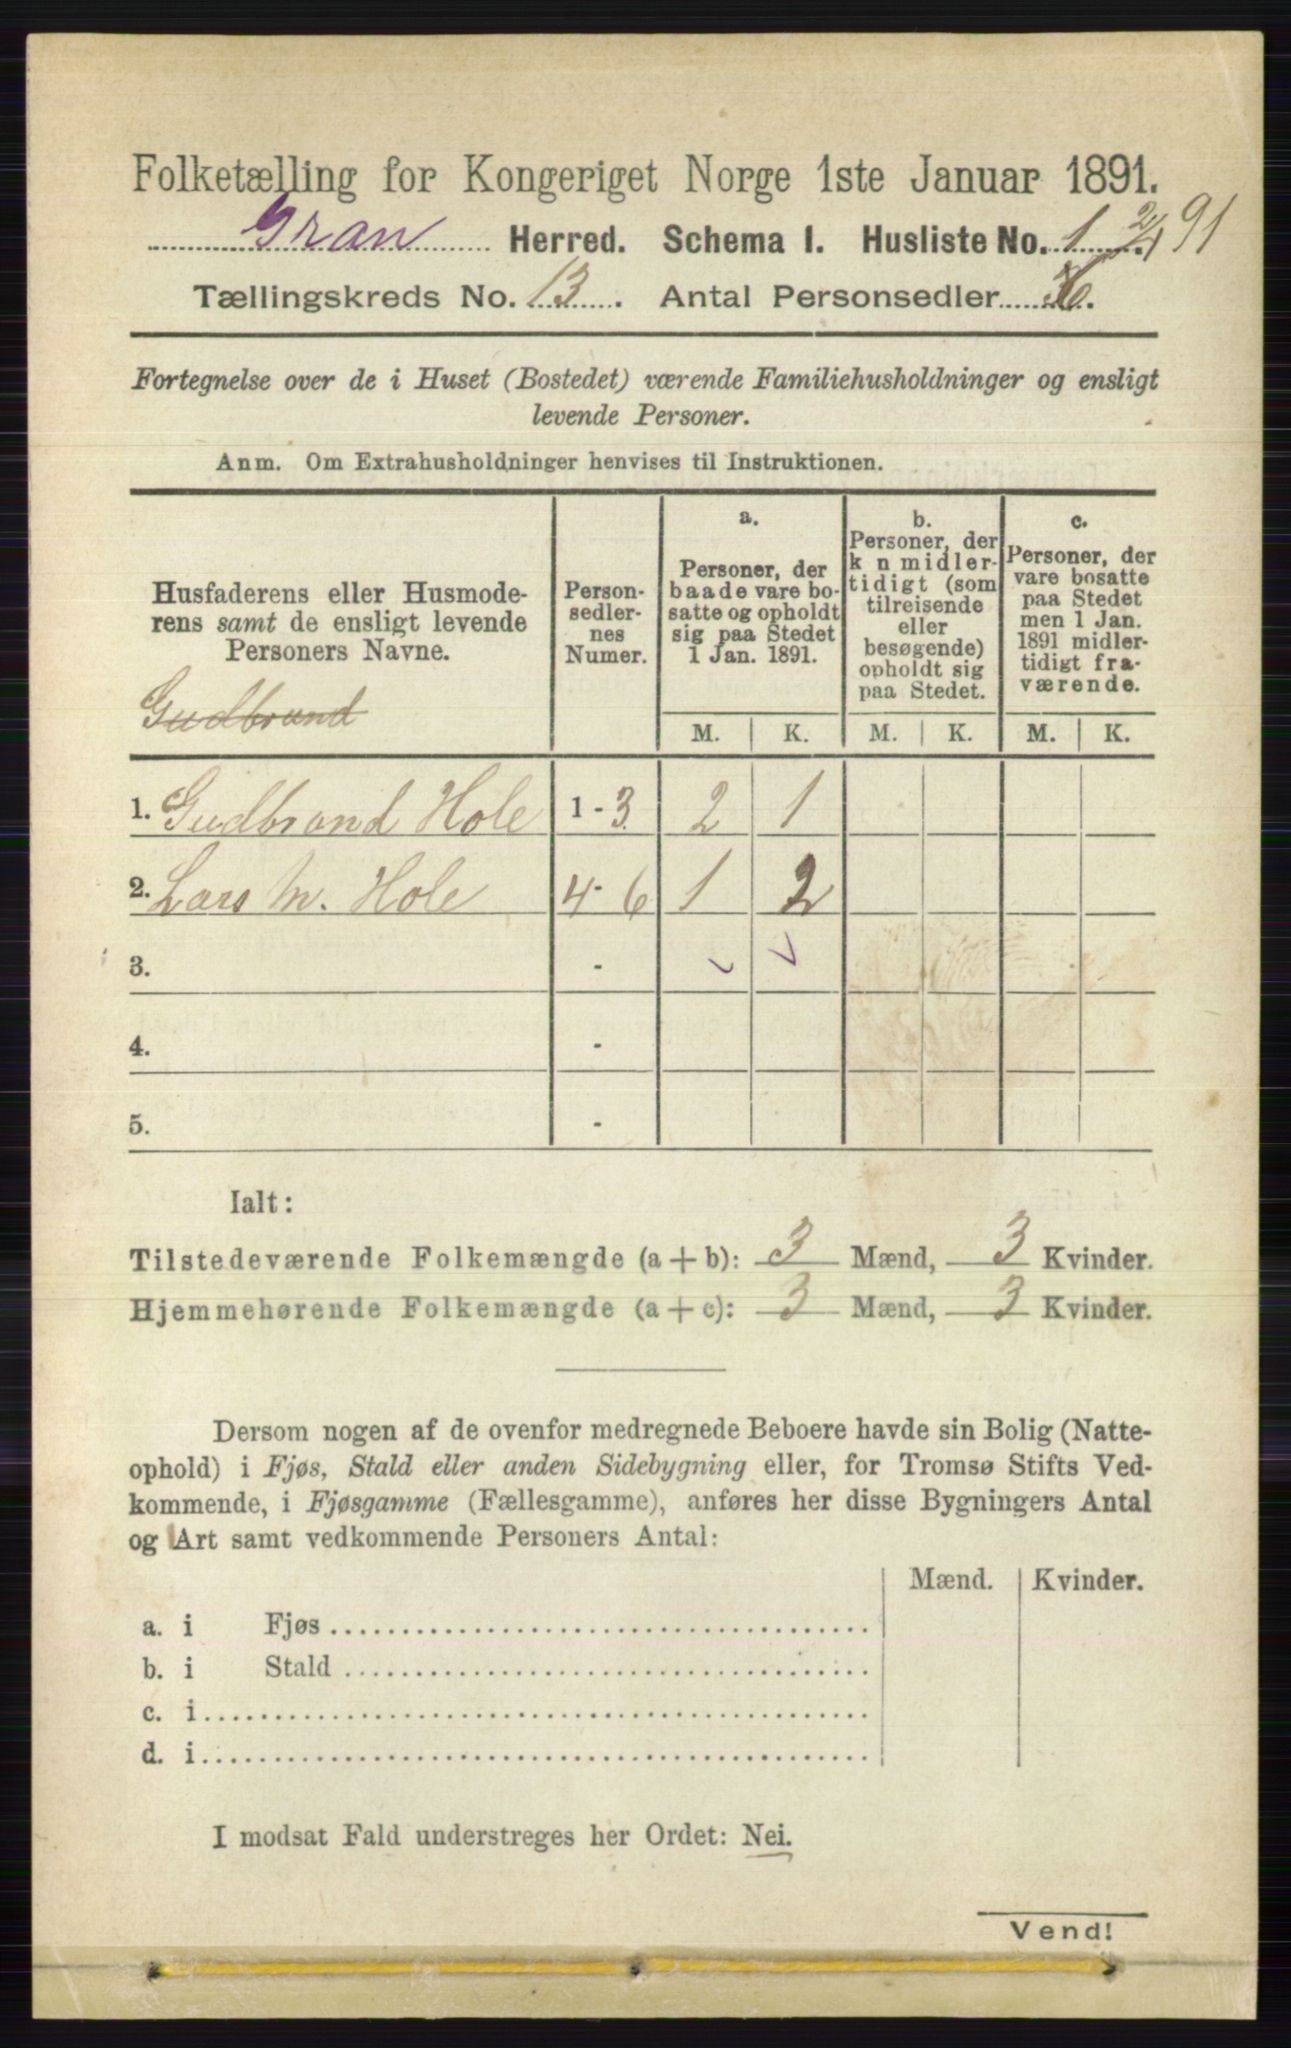 Folketælling for Kongeriget Norge 1ste Januar 1891.
Gran Herred. Schema I. Husliste No. 1 2/1 91
Tællingskreds No. 13. Antal Personsedler 6.
Fortegnelse over de i Huset (Bostedet) værende Familiehusholdninger og ensligt
levende Personer.
Anm. Om Extrahusholdninger henvises til Instruktionen.
Husfaderens eller Husmode-
rens samt de ensligt levende
Personers Navne.
Gudbrand
Person-
sedler-
nes
Numer.
a.
Personer, der
baade vare bo-
satte og opholdt
sig paa Stedet
1 Jan. 1891.
M. K.
b.
Personer, der
k n midler-
tidigt (som
tilreisende
eller
besøgende)
opholdt sig
paa Stedet.
M. K.
c.
Personer, der
vare bosatte
paa Stedet
men 1 Jan.
1891 midler-
tidigt fra-
værende.
M. K.
1. Gudbrand Hole 1 - 3 2 1
2. Lars M. Hole 4 - 6 1 2
3. -
4. -
5. -
Ialt:
Tilstedeværende Folkemængde (a + b): 3 Mænd, 3 Kvinder.
Hjemmehørende Folkemængde (a + c): 3 Mænd, 3 Kvinder.
Dersom nogen af de ovenfor medregnede Beboere havde sin Bolig (Natte-
ophold) i Fjøs, Stald eller anden Sidebygning eller, for Tromsø Stifts Ved-
kommende, i Fjøsgamme (Fællesgamme), anføres her disse Bygningers Antal
og Art samt vedkommende Personers Antal:
Mænd. Kvinder.
a. i Fjøs
b. i Stald
c. i
d. i
I modsat Fald understreges her Ordet: Nei.
Vend!